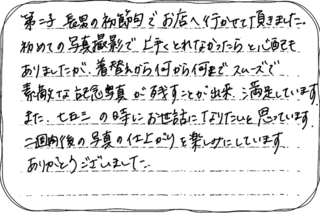 第二子 長男の初節句でお店へ行かせて頂きました。
初めての写真撮影で上手くとれなかったらと心配も
ありましたが、着替えから何から何までスムーズで
素敵な記念写真が残すことが出来、満足しています。
また、七五三の時にお世話になりたいと思っています。
二週間後の写真の仕上がりを楽しみにしています。
ありがとうございました。